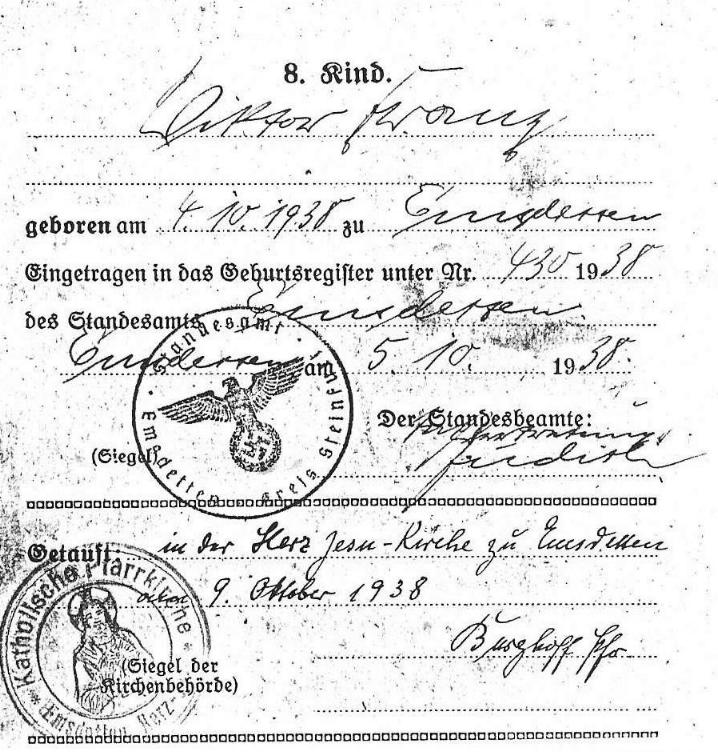 8. Kind.
Viktor Franz
geboren am 4. 10. 1938 zu Emsdetten
Eingetragen in das Geburtsregister unter Nr. 430 1938
des Standesamts Emsdetten.
Emsdetten am 5. 10. 1938.
Standesamt Emsdetten Kreis Steinfurt
Der Standesbeamte:
(Siegel)
Getauft: in der Herz Jesu-Kirche zu Emsdetten
am 9. Oktober 1938
Burghoff Pfr
Katholische Pfarrkirche
Emsdetten Herz-
(Siegel der
Kirchenbehörde)